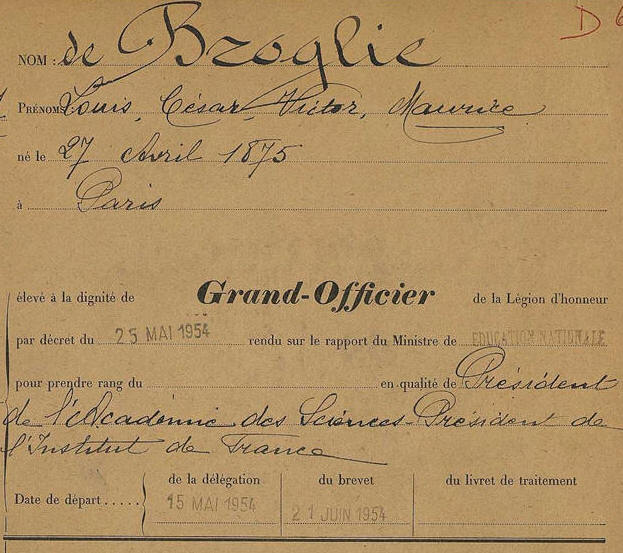 D
NOM : de Broglie
PRÉNOMS : Louis, César, Victor, Maurice
né le 27 Avril 1875
à Paris
élevé à la dignité de Grand-Officier de la Légion d'honneur
par décret du 25 MAI 1954 rendu sur le rapport du Ministre de EDUCATION NATIONALE
pour prendre rang du en qualité de Président
de l'Académie des Sciences-Président de
l'Institut de France
de la délégation du brevet du livret de traitement
Date de départ..... 15 MAI 1954 21 JUIN 1954